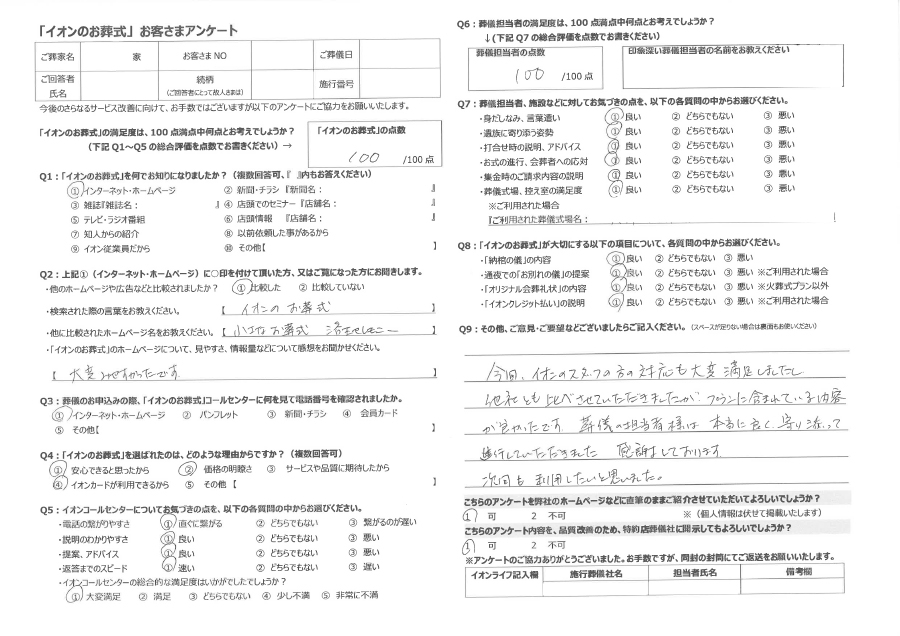 「イオンのお葬式」お客さまアンケート
ご葬家名 家 お客さまNO ご葬儀日
ご回答者氏名 続柄(ご回答者にとって故人さまは) 施行番号
今後のさらなるサービス改善に向けて、お手数ではございますが以下のアンケートにご協力をお願いいたします。
「イオンのお葬式」の満足度は、100点満点中何点とお考えでしょうか?
(下記Q1~Q5の総合評価を点数でお書きください)→
「イオンのお葬式」の点数
100 /100点
Q1:「イオンのお葬式」を何でお知りになりましたか?(複数回答可、『 』内もお答えください)
①インターネット・ホームページ ② 新聞・チラシ『新聞名: 』
③ 雑誌『雑誌名: 』 ④ 店頭でのセミナー『店舗名: 』
⑤ テレビ・ラジオ番組 ⑥ 店頭情報 『店舗名: 』
⑦ 知人からの紹介 ⑧ 以前依頼した事があるから
⑨ イオン従業員だから ⑩ その他【 】
Q2:上記①(インターネット・ホームページ)に○印を付けて頂いた方、又はご覧になった方にお聞きします。
・他のホームページや広告などと比較されましたか? ①比較した ② 比較していない
・検索された際の言葉をお教えください。 【 イオンのお葬式 】
・他に比較されたホームページ名をお教えください。【 小さなお葬式 】
・「イオンのお葬式」のホームページについて、見やすさ、情報量などについて感想をお聞かせください。
【 大変みやすかったです 】
Q3:葬儀のお申込みの際、「イオンのお葬式」コールセンターに何を見て電話番号を確認されましたか。
①インターネット・ホームページ ② パンフレット ③ 新聞・チラシ ④ 会員カード
⑤ その他【 】
Q4:「イオンのお葬式」を選ばれたのは、どのような理由からですか?(複数回答可)
① 安心できると思ったから ② 価格の明瞭さ ③ サービスや品質に期待したから
④ イオンカードが利用できるから ⑤ その他【 】
Q5:イオンコールセンターについてお気づきの点を、以下の各質問の中からお選びください。
・電話の繋がりやすさ ①直ぐに繋がる ② どちらでもない ③ 繋がるのが遅い
・説明のわかりやすさ ①良い ② どちらでもない ③ 悪い
・提案、アドバイス ①良い ② どちらでもない ③ 悪い
・返答までのスピード ①速い ② どちらでもない ③ 遅い
・イオンコールセンターの総合的な満足度はいかがでしたでしょうか?
① 大変満足 ② 満足 ③ どちらでもない ④ 少し不満 ⑤ 非常に不満
Q6:葬儀担当者の満足度は、100点満点中何点とお考えでしょうか?
↓(下記Q7の総合評価を点数でお書きください)
葬儀担当者の点数 印象深い葬儀担当者の名前をお教えください
100 /100点
Q7:葬儀担当者、施設などに対してお気づきの点を、以下の各質問の中からお選びください。
・身だしなみ、言葉遣い ①良い ② どちらでもない ③ 悪い
・遺族に寄り添う姿勢 ①良い ② どちらでもない ③ 悪い
・打合せ時の説明、アドバイス ①良い ② どちらでもない ③ 悪い
・お式の進行、会葬者への応対 ①良い ② どちらでもない ③ 悪い
・集金時のご請求内容の説明 ①良い ② どちらでもない ③ 悪い
・葬儀式場、控え室の満足度 ①良い ② どちらでもない ③ 悪い
※ご利用された場合
『ご利用された葬儀式場名:
Q8:「イオンのお葬式」が大切にする以下の項目について、各質問の中からお選びください。
・「納棺の儀」の内容 ①良い ② どちらでもない ③ 悪い
・通夜での「お別れの儀」の提案 ①良い ② どちらでもない ③ 悪い ※ご利用された場合
・「オリジナル会葬礼状」の内容 ①良い ② どちらでもない ③ 悪い ※火葬式プラン以外
・「イオンクレジット払い」の説明 ①良い ② どちらでもない ③ 悪い ※ご利用された場合
Q9:その他、ご意見・ご要望などございましたらご記入ください。(スペースが足りない場合は裏面もお使いください)
今回、イオンのスタッフの方の対応も大変満足しましたし
他社とも比べさせていただきましたが、プランに含まれている内容
が良かったです。葬儀の担当者様は本当に良く寄り添って
進行していただきました 感謝しております
次回も利用したいと思いました。
こちらのアンケートを弊社のホームページなどに直筆のままご紹介させていただいてよろしいでしょうか?
1 可 2 不可 ※(個人情報は伏せて掲載いたします)
こちらのアンケート内容を、品質改善のため、特約店葬儀社に開示してもよろしいでしょうか?
1 可 2 不可
※アンケートのご協力ありがとうございました。お手数ですが、同封の封筒にてご返送をお願いいたします。
イオンライフ記入欄 施行葬儀社名 担当者氏名 備考欄